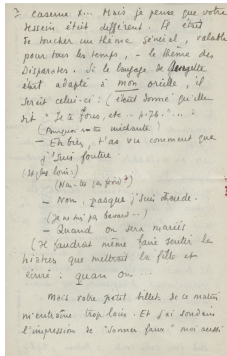 caserne X... Mais je pense que votre
dessein était différent. Il était
de toucher un thème général, valable
pour tous les temps, – le thème des
Disparates. Si le langage de
était adapté à mon oreille, il
serait celui-ci : (étant donné qu'elle
dit " Je " fous, etc... p. 76." ... :
(Pourquoi cette méchante)
– Eh bien, t'as vu comment que
j'suis foutue
(et plus loin)
(N'as-tu pas froid ?)
– Non, pasque j'suis chaude.
(Je ne suis pas bavard...)
– Quand on sera mariés
(Il faudrait même faire sentir le
hiatus que mettrait la fille et
écrire : quan on ...
Mais votre petit billet de ce matin
m'entraîne trop loin. Et j'ai soudain
l'impression de "sonner faux" moi aussi